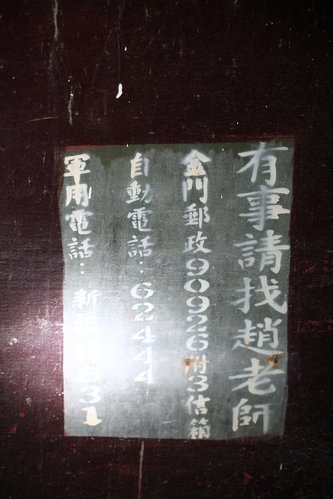 有事請找趙老師
金門郵政90926附3信箱
自動電話：62444
軍用電話：新